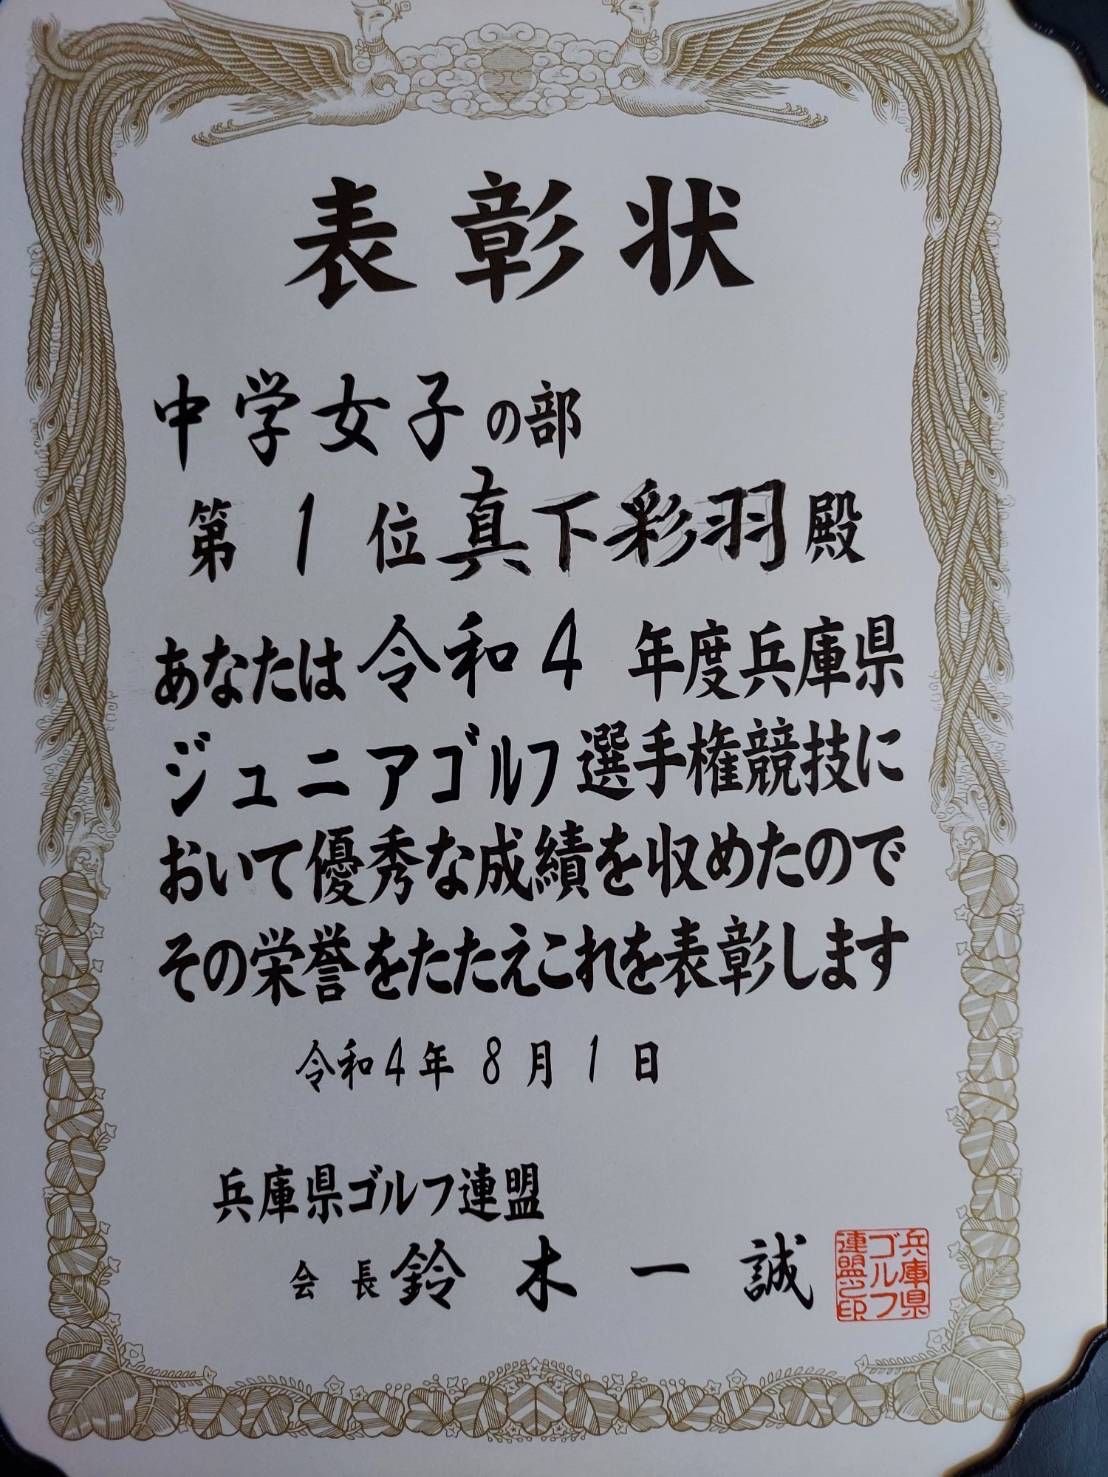 表彰状
中学女子の部
第1位真下彩羽殿
あなたは令和4年度兵庫県
ジュニアゴルフ選手権競技に
おいて優秀な成績を収めたので
その栄誉をたたえこれを表彰します
令和4年8月1日
兵庫県ゴルフ連盟
会長鈴木一誠
兵庫県
ゴルフ
連盟之印